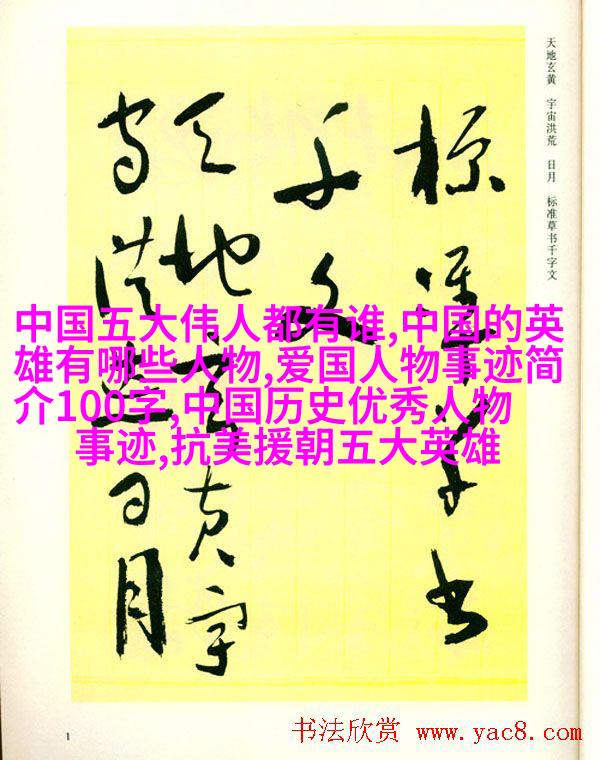 天地玄黄 宇宙洪荒 日月 标准草书千字文
標準草書
千文
天地玄黄宇
宙洪荒日月
中国五大伟人都有谁,中国的英
雄有哪些人物,爱国人物事迹简
介100字,中国历史优秀人物
事迹,抗美援朝五大英雄
1
书法欣赏 www.yac8.com